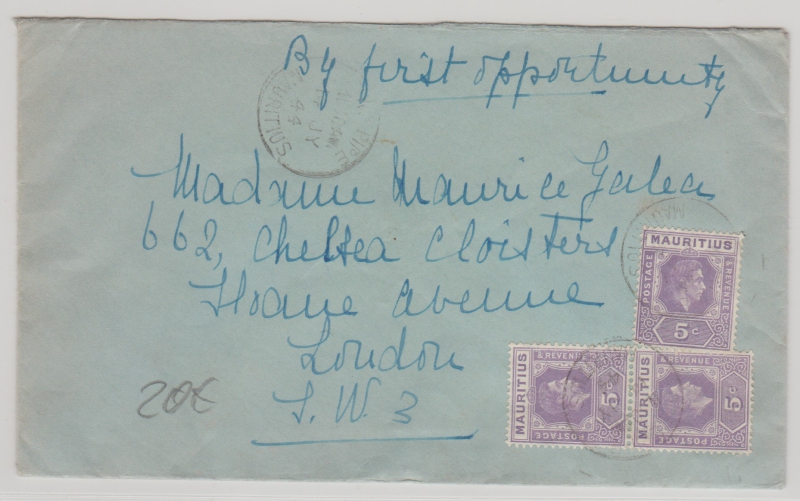 By first opportunity
PIPE
11 JY
44
MAURITIUS
Madame Maurice Galea
662, Chelsea Cloisters
Sloane avenue
London
S.W.3
20€
MAURITIUS
POSTAGE
& REVENUE
5c
MAURITIUS
POSTAGE
& REVENUE
5c
MAURITIUS
POSTAGE
& REVENUE
5c